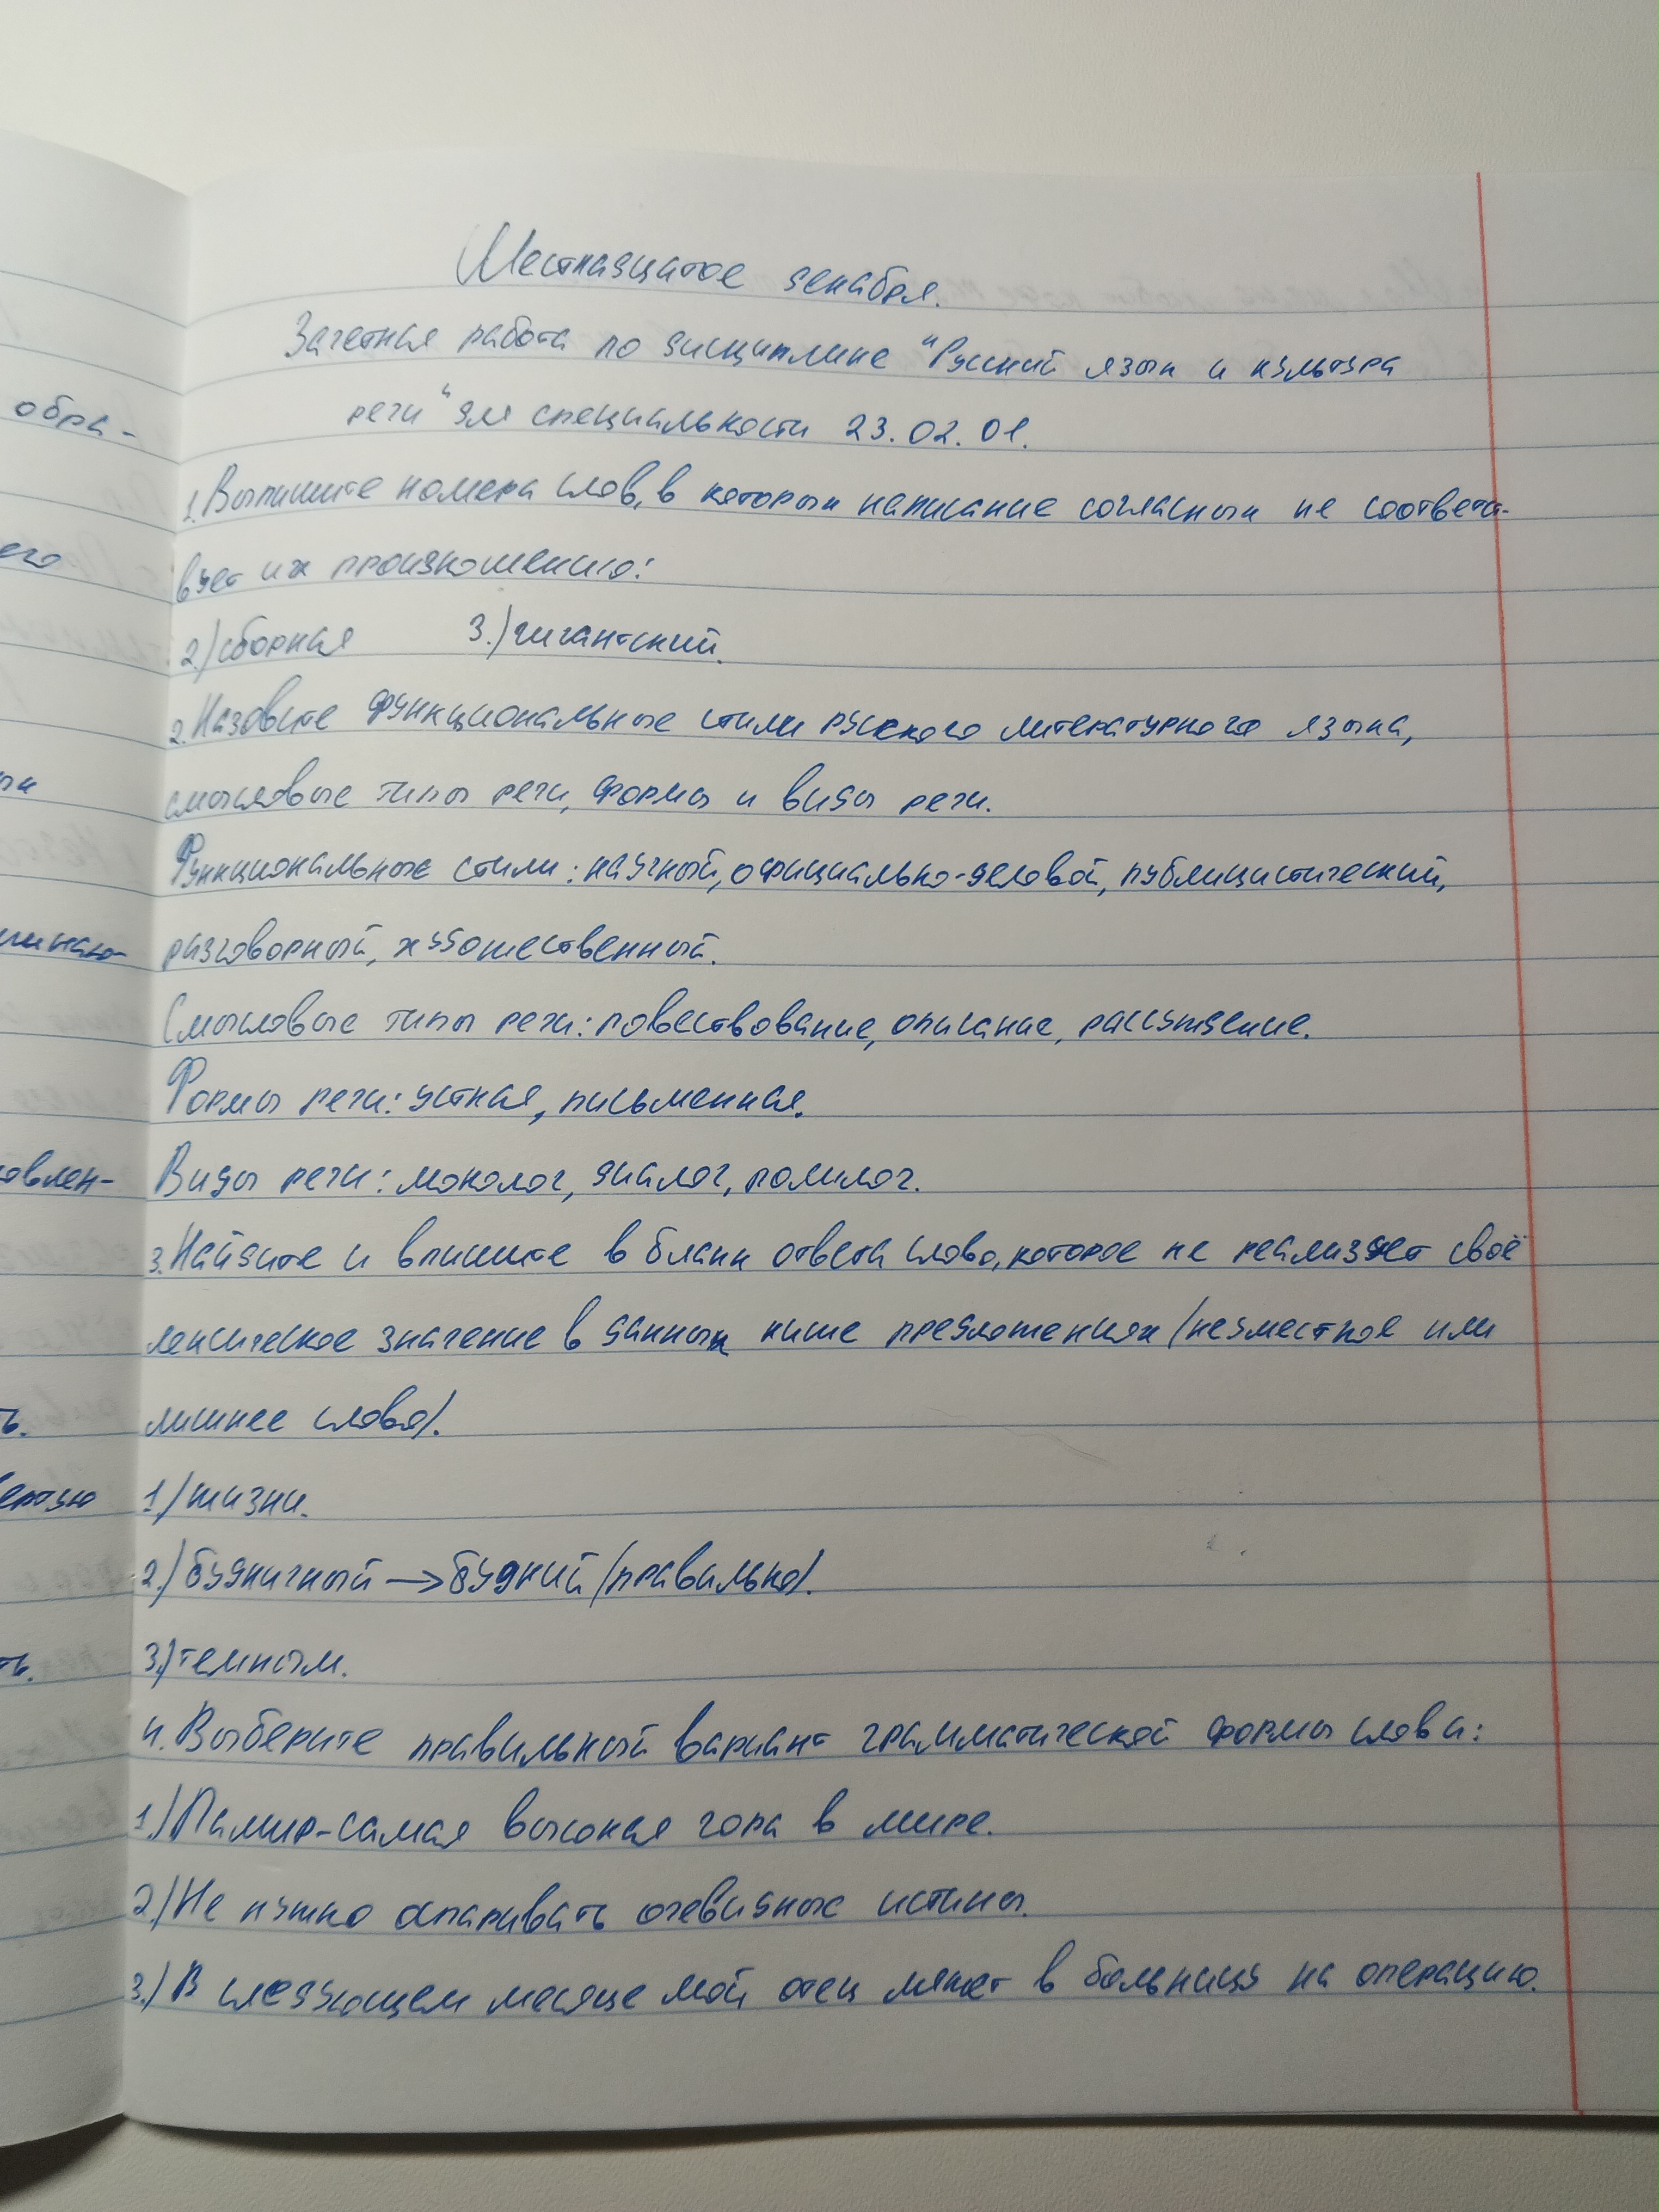 Шестнадцатое декабря.
Зачетная работа по дисциплине "Русский язык и культура
речи" для специальности 23.02.01.
1. Выпишите номера слов, в которых написание согласных не соответст-
вует их произношению:
2.) сборная 3.) гигантский.
2. Назовите функциональные стили русского литературного языка,
смысловые типы речи, формы и виды речи.
Функциональные стили: научный, официально-деловой, публицистический,
разговорный, художественный.
Смысловые типы речи: повествование, описание, рассуждение.
Формы речи: устная, письменная.
Виды речи: монолог, диалог, полилог.
3. Найдите и впишите в бланк ответа слово, которое не реализует своё
лексическое значение в данных ниже предложениях (неуместное или
лишнее слово).
1.) жизни.
2.) будничный → будний (правильно).
3.) темным.
4. Выберите правильный вариант грамматической формы слова:
1.) Памир-самая высокая гора в мире.
2.) Не нужно оспаривать очевидные истины.
3.) В следующем месяце мой отец ляжет в больницу на операцию.
обра-
его
ых
минаю-
овлен-
ть.
ть.